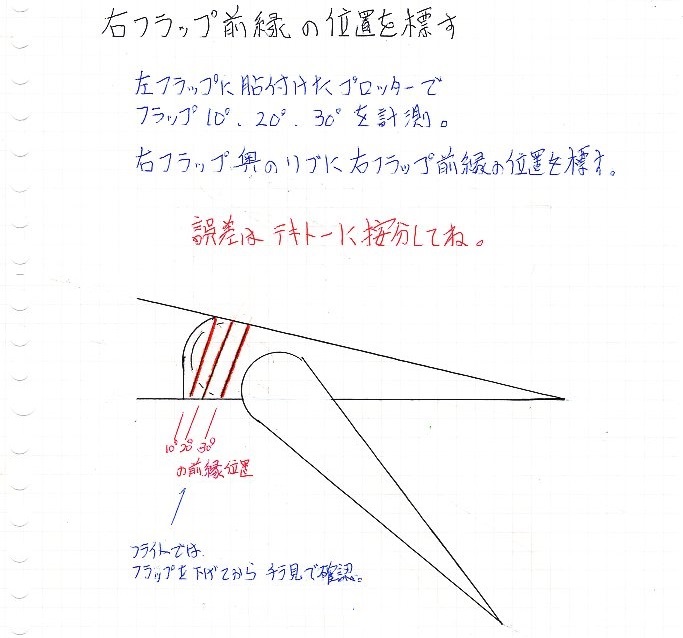 右フラップ前縁の位置を標す
左フラップに貼付けたプロッターで
フラップ10°、20°、30°を計測。
右フラップ奥のリブに右フラップ前縁の位置を標す。
誤差はテキトーに按分してね。
10° 20° 30°
の前縁位置
フライトでは、
フラップを下げてから チラ見で確認。